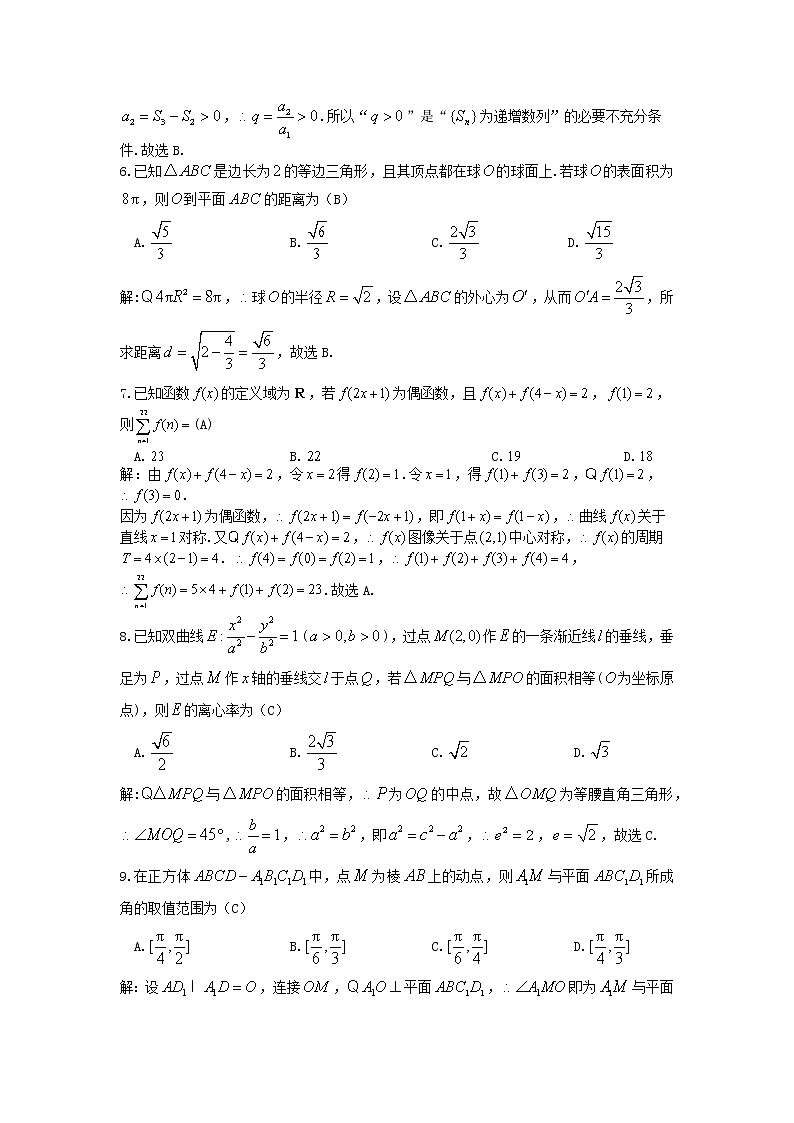 a₂ = S₃ − S₂ > 0, ∴ q = a₂/a₁ > 0.所以“q > 0”是“{Sₙ}为递增数列”的必要不充分条
件.故选 B.
6.已知△ABC是边长为2的等边三角形，且其顶点都在球O的球面上.若球O的表面积为
8π,则O到平面ABC的距离为(B)
A. √5/3 B. √6/3 C. 2√3/3 D. √15/3
解:Q 4πR² = 8π, ∴球O的半径R = √2,设△ABC的外心为O′,从而O′A = 2√3/3,所
求距离d = √(2 − 4/3) = √6/3,故选 B.
7.已知函数f(x)的定义域为R,若f(2x+1)为偶函数,且f(x)+f(4−x)=2, f(1)=2,
则∑_{n=1}^{22} f(n) = (A)
A. 23 B. 22 C. 19 D. 18
解: 由f(x)+f(4−x)=2,令x=2得f(2)=1.令x=1,得f(1)+f(3)=2,Q f(1)=2,
∴ f(3)=0.
因为f(2x+1)为偶函数,∴ f(2x+1)=f(−2x+1),即f(1+x)=f(1−x),∴曲线f(x)关于
直线x=1对称.又Q f(x)+f(4−x)=2,∴ f(x)图像关于点(2,1)中心对称,∴ f(x)的周期
T=4×(2−1)=4. ∴ f(4)=f(0)=f(2)=1,∴ f(1)+f(2)+f(3)+f(4)=4,
∴ ∑_{n=1}^{22} f(n)=5×4+f(1)+f(2)=23.故选 A.
8.已知双曲线E: x²/a² − y²/b² = 1(a>0,b>0),过点M(2,0)作E的一条渐近线l的垂线,垂
足为P,过点M作x轴的垂线交l于点Q,若△MPQ与△MPO的面积相等(O为坐标原
点),则E的离心率为(C)
A. √6/2 B. 2√3/3 C. √2 D. √3
解:Q△MPQ与△MPO的面积相等,∴ P为OQ的中点,故△OMQ为等腰直角三角形,
∴∠MOQ=45°,∴ b/a = 1, ∴a²=b²,即a²=c²−a²,∴e²=2,e=√2,故选 C.
9.在正方体ABCD−A₁B₁C₁D₁中,点M为棱AB上的动点,则A₁M与平面ABC₁D₁所成
角的取值范围为(C)
A.[π/4,π/2] B.[π/6,π/3] C.[π/6,π/4] D.[π/4,π/3]
解: 设AD₁ I A₁D=O,连接OM,Q A₁O⊥平面ABC₁D₁,∴∠A₁MO即为A₁M与平面